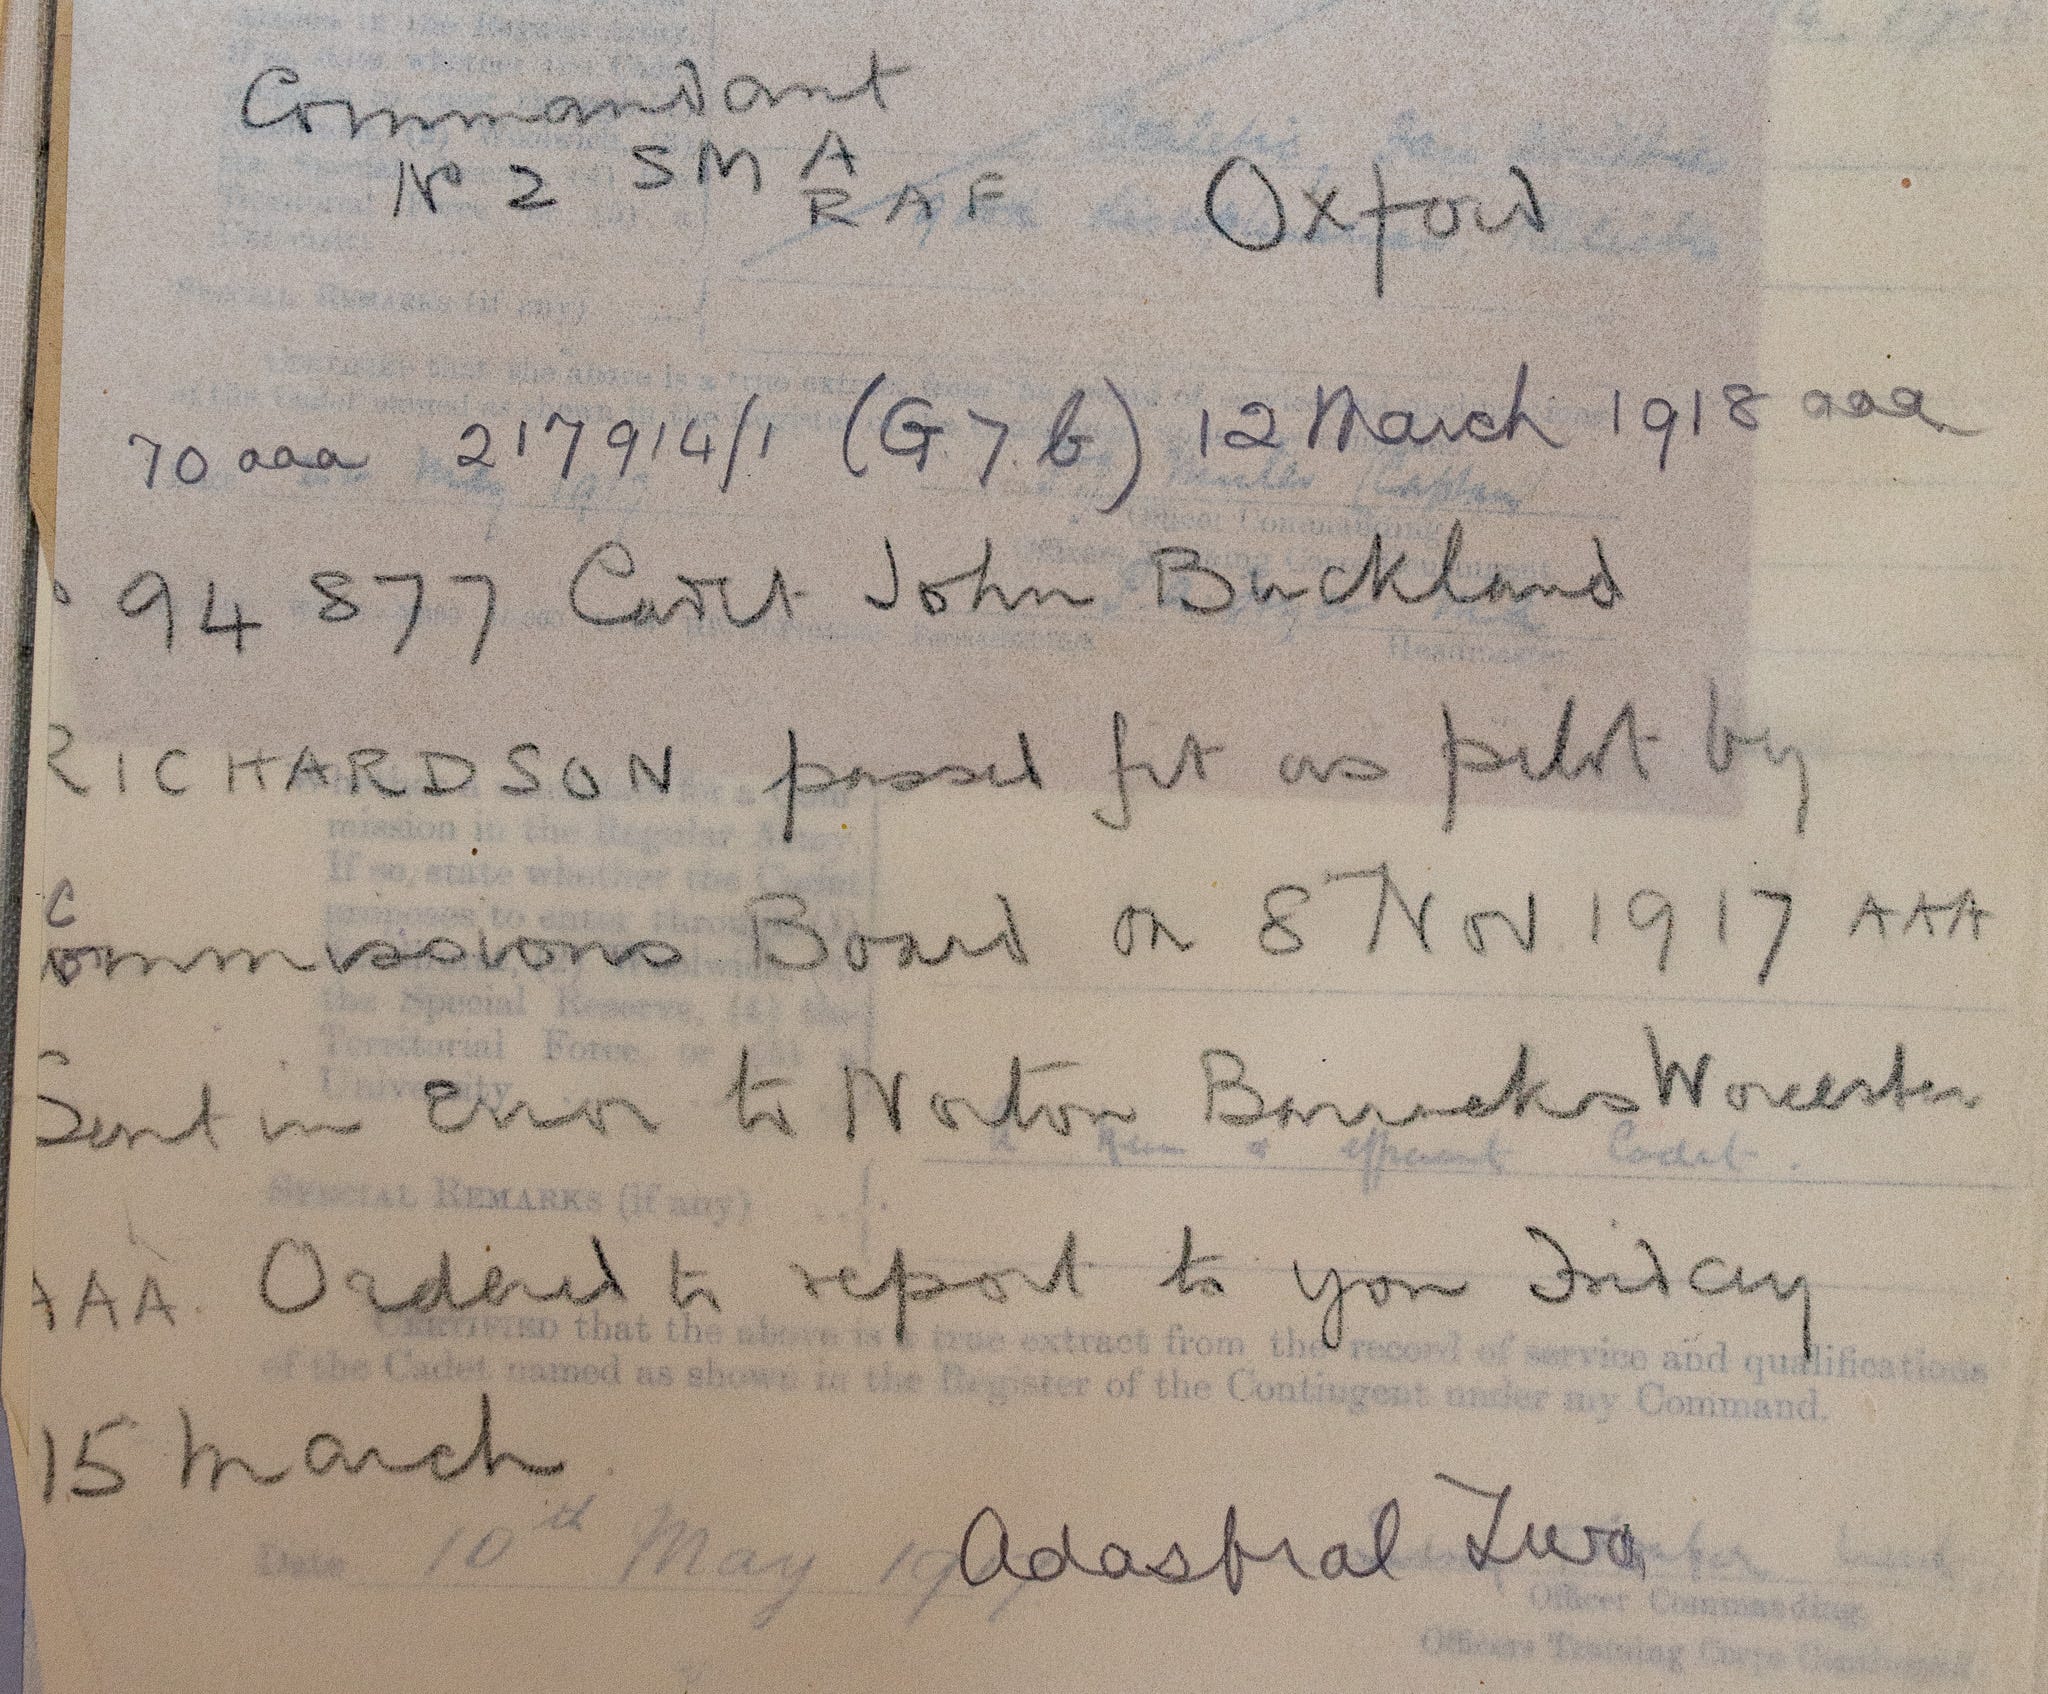 Commandant
No 2 SMA
RAF Oxford
70 aaa 217914/1 (G.7.b) 12 March 1918 aaa
94877 Cadet John Buckland
RICHARDSON passed fit as pilot by
Commissions Board on 8 Nov 1917 AAA
Sent in Error to Norton Barracks Worcester
a keen & efficient Cadet.
SPECIAL REMARKS (if any)
AAA. Ordered to report to you Friday
CERTIFIED that the above is a true extract from the record of service and qualifications
of the Cadet named as shown in the Register of the Contingent under my Command.
15 March.
Adastral Two
Date 10th May 19
Officer Commanding,
Officers Training Corps Contingent
mission in the Regular Army.
If so, state whether the Cadet
proposes to enter through (1)
the Special Reserve, (4) the
Territorial Force, or (5) a
University
SPECIAL REMARKS (if any)
Officer Commanding
Headmaster